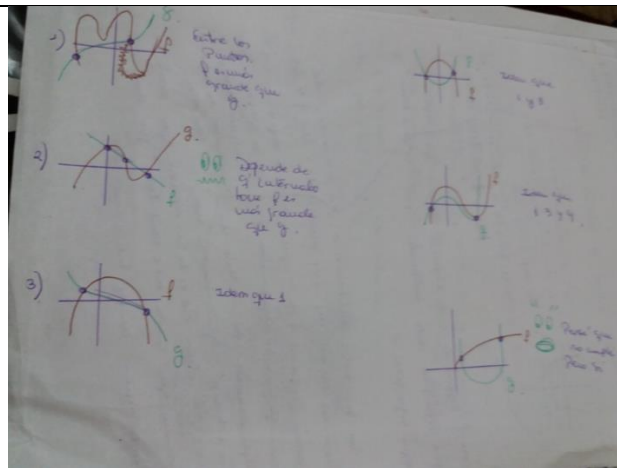 1)
g.
f
Entre los
Puntos
f es más
grande que
g.
2)
g.
f
Depende de
q intervalo
tome f es
más grande
que g.
3)
f
g.
Idem que 1
f
Idem que
1 y 3
f
Idem que
1 3 y 4
f
g
Pensé que
no cumple
Pero si